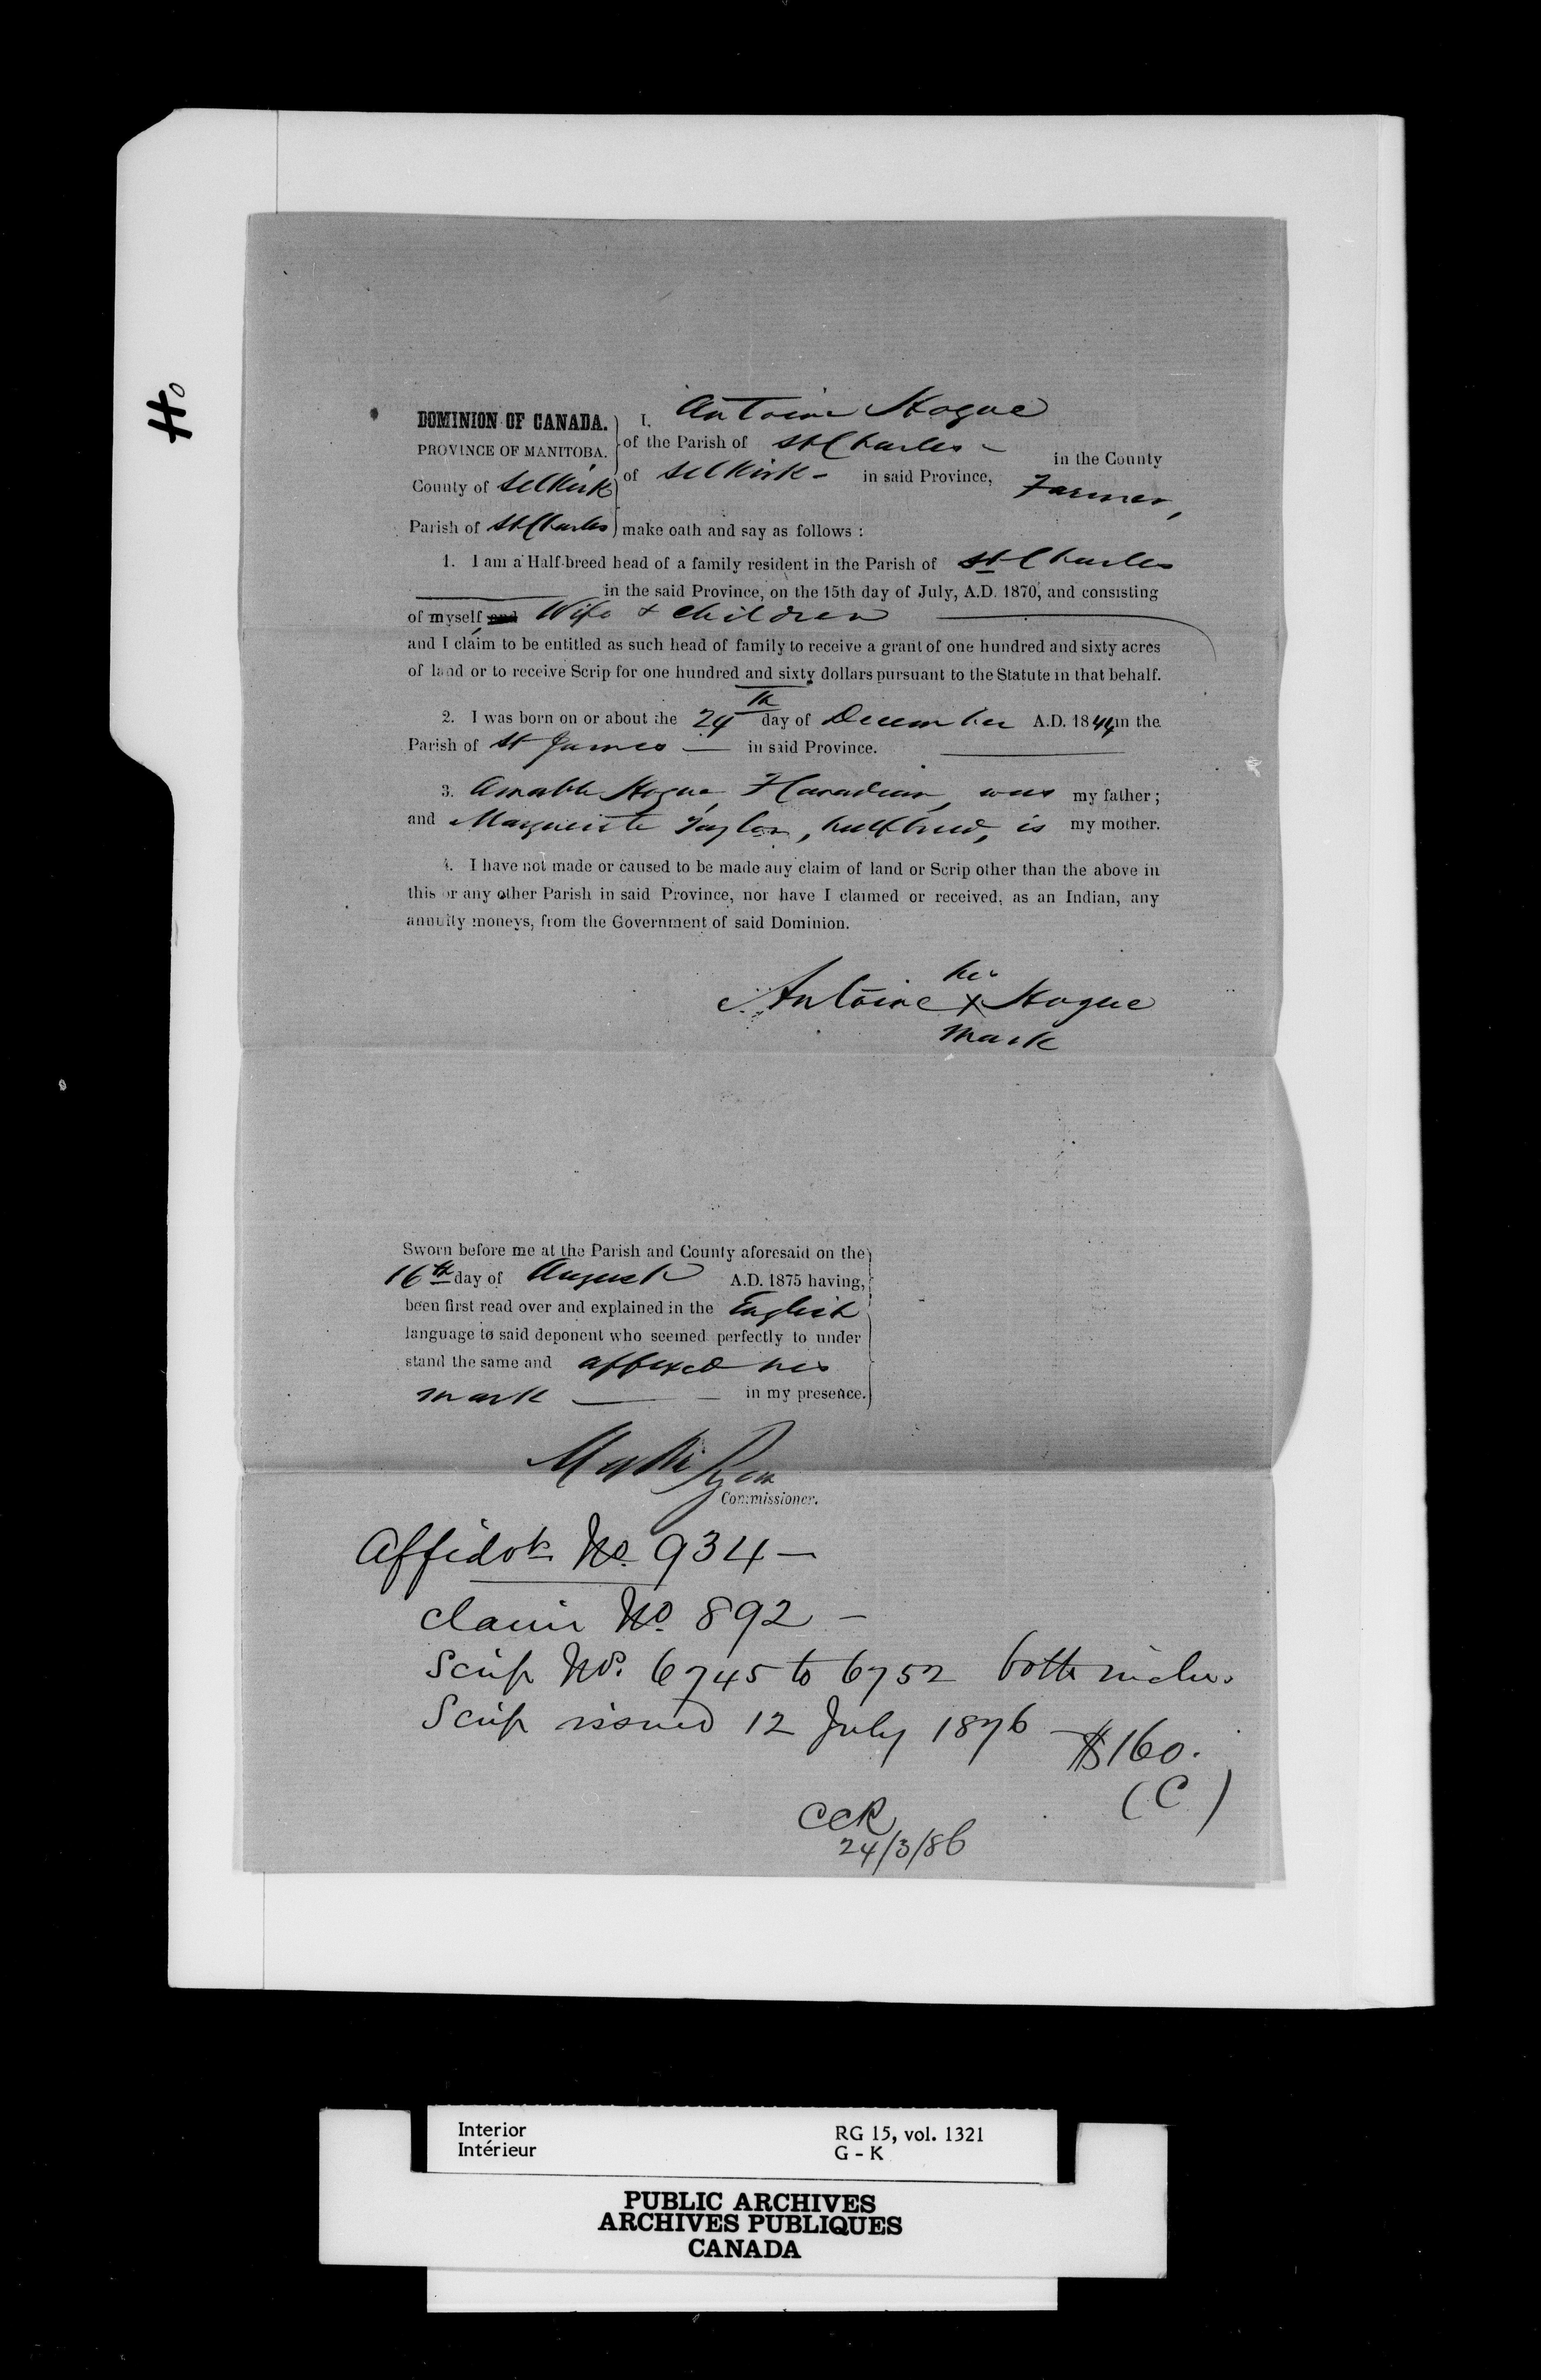 Ho
DOMINION OF CANADA.
PROVINCE OF MANITOBA.
County of Selkirk
Parish of St Charles
I, Antoine Hogue
of the Parish of St Charles - in the County
of Selkirk - in said Province, Farmer,
make oath and say as follows :
1. I am a Half-breed head of a family resident in the Parish of St Charles
in the said Province, on the 15th day of July, A.D. 1870, and consisting
of myself, and Wife & Children
and I claim to be entitled as such head of family to receive a grant of one hundred and sixty acres
of land or to receive Scrip for one hundred and sixty dollars pursuant to the Statute in that behalf.
2. I was born on or about the 24th day of December A.D. 1844 in the
Parish of St James — in said Province.
3. Amable Hogue, F Canadian, was my father ;
and Marguerite Taylor, halfbreed, is my mother.
4. I have not made or caused to be made any claim of land or Scrip other than the above in
this or any other Parish in said Province, nor have I claimed or received, as an Indian, any
annuity moneys, from the Government of said Dominion.
his
Antoine X Hogue
mark
Sworn before me at the Parish and County aforesaid on the
16th day of August A.D. 1875 having,
been first read over and explained in the English
language to said deponent who seemed perfectly to under
stand the same and affixed his
mark — in my presence.
Ryan
Commissioner.
Affidvt No. 934 —
Claim No. 892 —
Scrip No. 6745 to 6752 both inclus.
Scrip issued 12 July 1876 — $160.
(C)
CCR
24/3/86
Interior
Intérieur
RG 15, vol. 1321
G - K
PUBLIC ARCHIVES
ARCHIVES PUBLIQUES
CANADA